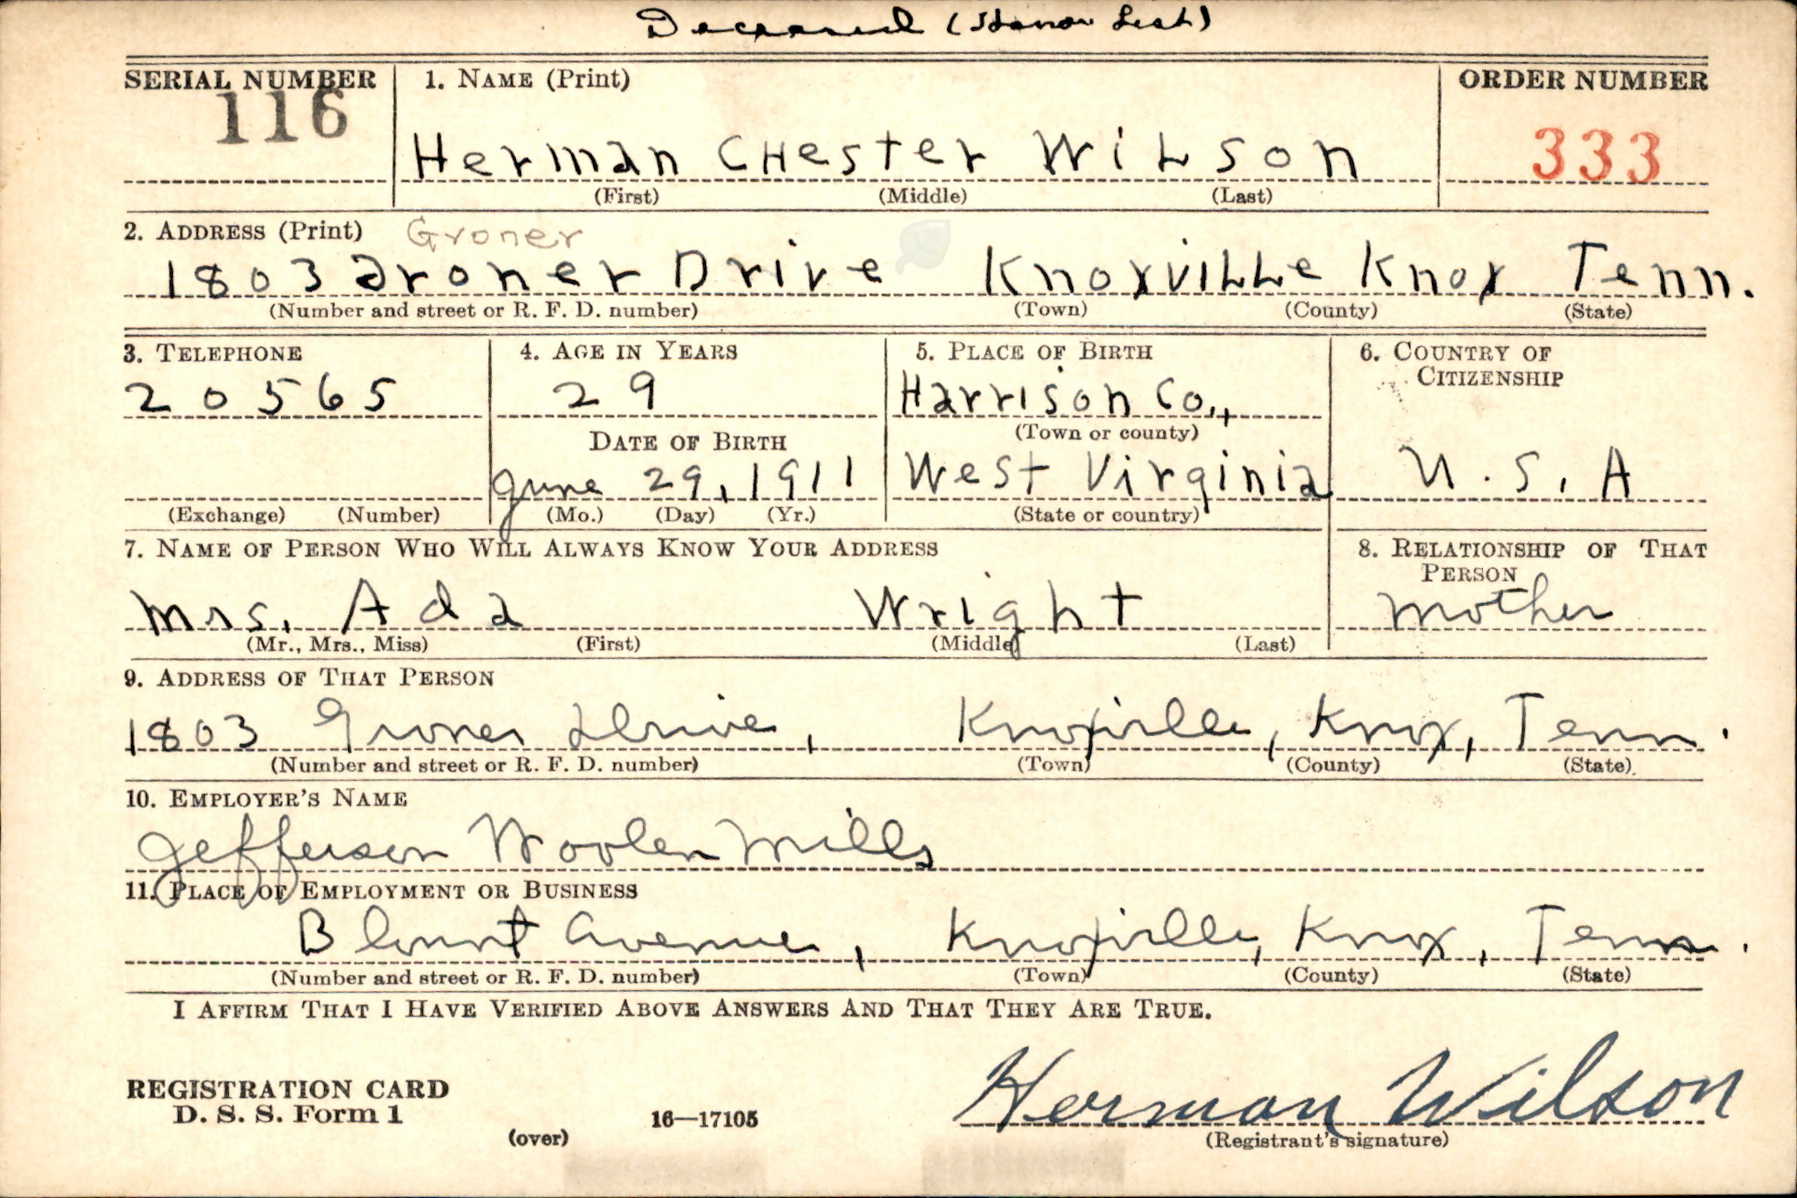 Deceased (Honor List)
SERIAL NUMBER 1. NAME (Print) ORDER NUMBER
116 Herman CHester WiLson 333
(First) (Middle) (Last)
2. ADDRESS (Print) Groner
1803 Groner Drive KnoxviLLe Knox Tenn.
(Number and street or R. F. D. number) (Town) (County) (State)
3. TELEPHONE 4. AGE IN YEARS 5. PLACE OF BIRTH 6. COUNTRY OF CITIZENSHIP
20565 29 Harrison Co.,
(Town or county)
DATE OF BIRTH
June 29, 1911 West Virginia U.S.A
(Exchange) (Number) (Mo.) (Day) (Yr.) (State or country)
7. NAME OF PERSON WHO WILL ALWAYS KNOW YOUR ADDRESS 8. RELATIONSHIP OF THAT PERSON
Mrs. Ada Wright Mother
(Mr., Mrs., Miss) (First) (Middle) (Last)
9. ADDRESS OF THAT PERSON
1803 Groner Drive, Knoxville, Knox, Tenn.
(Number and street or R. F. D. number) (Town) (County) (State)
10. EMPLOYER'S NAME
Jefferson Woolen Mills
11. PLACE OF EMPLOYMENT OR BUSINESS
Blount Avenue, Knoxville, Knox, Tenn.
(Number and street or R. F. D. number) (Town) (County) (State)
I AFFIRM THAT I HAVE VERIFIED ABOVE ANSWERS AND THAT THEY ARE TRUE.
REGISTRATION CARD
D. S. S. Form 1
(over) 16—17105
Herman Wilson
(Registrant's signature)